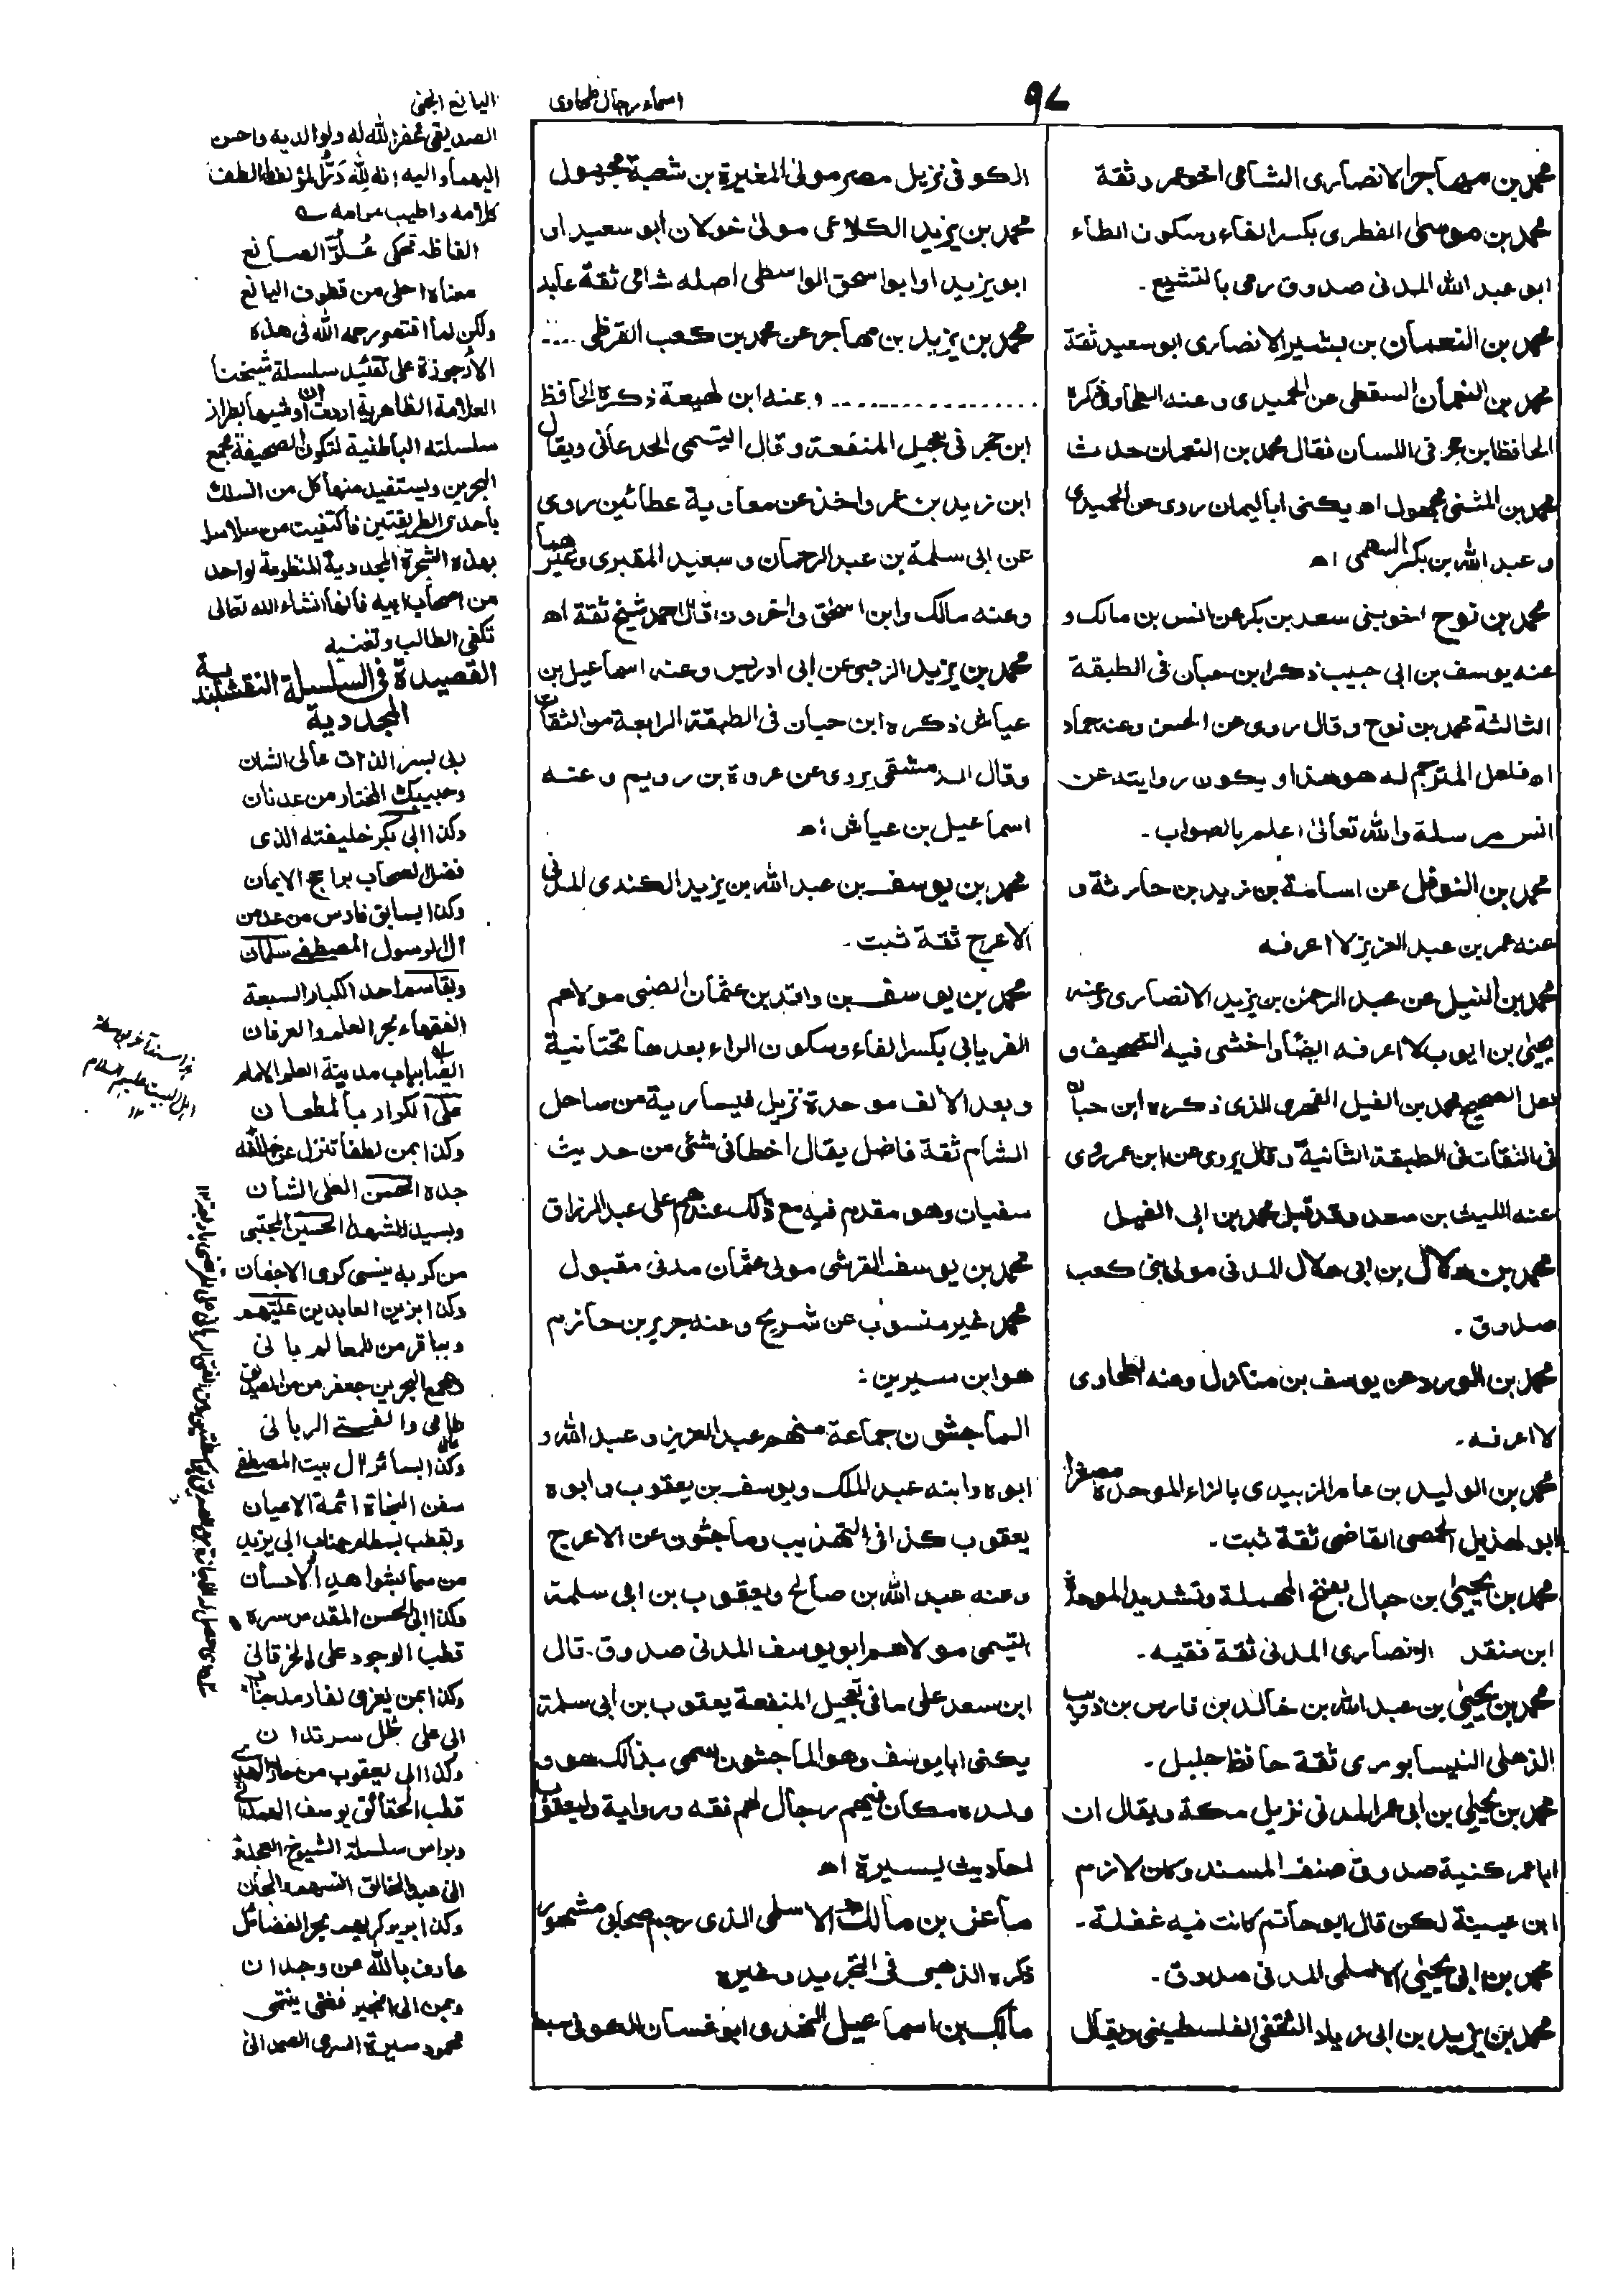 ٩٧
اسماء رجال طحاوى
اليانع الجنى
محمد بن مهاجر الانصارى الشامى اخو عمرو ثقة
محمد بن موسى الفطرى بكسر الفاء وسكون الطاء
ابو عبد الله المدنى صدوق رمى بالتشيع ـ
محمد بن النعمان بن بشير الانصارى ابو سعيد ثقة
محمد بن النعمان السقطى عن الحميدى وعنه الطحاوى ذكره
الحافظ ابن حجر فى اللسان فقال محمد بن النعمان حدث
محمد بن المثنى مجهول اه يكنى ابا اليمان روى عن الحميدى
وعبد الله بن بكر السهمى اه
محمد بن نوح اخو بنى سعد بن بكر عن انس بن مالك و
عنه يوسف بن ابى حبيب ذكر ابن حبان فى الطبقة
الثالثة محمد بن نوح وقال روى عن الحسن وعنه حماد
اه فلعل المترجم له هو هذا و يكون روايته عن
انس مرسلة والله تعالى اعلم بالصواب ـ
محمد بن النوفل عن اسامة بن زيد بن حارثة و
عنه عمر بن عبد العزيز لا اعرفه
محمد بن النيل عن عبد الرحمن بن يزيد الانصارى وعنه
يحيى بن ايوب لا اعرفه ايضًا واخشى فيه التصحيف و
لعل الصحيح محمد بن الفيل الفهرى الذى ذكره ابن حبان
فى الثقات فى الطبقة الثانية وقال يروى عن ابن عمر روى
عنه الليث بن سعد وقد قيل محمد بن ابى الفيل
محمد بن هلال بن ابى هلال المدنى مولى بنى كعب
صدوق ـ
محمد بن الورد عن يوسف بن منازل وعنه الطحاوى
لا اعرفه ـ
محمد بن الوليد بن عامر الزبيدى بالزاء الموحدة مصغرا
ابو الهذيل الحمصى القاضى ثقة ثبت ـ
محمد بن يحيى بن حبال بفتح المهملة وتشديد الموحدة
ابن منقد الانصارى المدنى ثقة فقيه ـ
محمد بن يحيى بن عبد الله بن خالد بن فارس بن ذويب
الذهلى النيسابورى ثقة حافظ جليل ـ
محمد بن يحيى بن ابى عمر المدنى نزيل مكة ويقال ان
ابا عمر كنية صدوق صنف المسند وكان لازم
ابن عيينة لكن قال ابو حاتم كانت فيه غفلة ـ
محمد بن ابى يحيى الاسلمى المدنى صدوق ـ
محمد بن يزيد بن ابى زياد الثقفى الفلسطينى ويقال
الكوفى نزيل مصر مولى المغيرة بن شعبة مجهول
محمد بن يزيد الكلاعى مولى خولان ابو سعيد او
ابو يزيد او ابو اسحق الواسطى اصله شامى ثقة عابد
محمد بن يزيد بن مهاجر عن محمد بن كعب القرظى ....
.................... وعنه ابن لهيعة ذكره الحافظ
ابن حجر فى تعجيل المنفعة وقال التيمى الجدعانى ويقال
ابن زيد بن عمر واخذ عن معاوية عطائين روى
عن ابى سلمة بن عبد الرحمان وسعيد المقبرى وغيرهما
وعنه مالك وابن اسحق واخرون قال احمد شيخ ثقة اه
محمد بن يزيد الرحبى عن ابى ادريس وعنه اسماعيل بن
عياش ذكره ابن حبان فى الطبقة الرابعة من الثقات
وقال الدمشقى يروى عن عروة بن رويم وعنه
اسماعيل بن عياش اه
محمد بن يوسف بن عبد الله بن يزيد الكندى المدنى
الاعرج ثقة ثبت ـ
محمد بن يوسف بن واقد بن عثمان الضبى مولاهم
الفريابى بكسر الفاء وسكون الراء بعدها تحتانية
وبعد الالف موحدة نزيل قيسارية من ساحل
الشام ثقة فاضل يقال أخطا فى شئى من حديث
سفيان وهو مقدم فيه مع ذالك عندهم على عبد الرزاق
محمد بن يوسف القرشى مولى عثمان مدنى مقبول
محمد غير منسوب عن شريح وعنه جرير بن حازم
هو ابن سيرين :
الماجشون جماعة منهم عبد العزيز وعبد الله و
ابوه وابنه عبد الملك ويوسف بن يعقوب وابوه
يعقوب كذا فى التهذيب وماجشون عن الاعرج
وعنه عبد الله بن صالح ويعقوب بن ابى سلمة
التيمى مولاهم ابو يوسف المدنى صدوق ـ قال
ابن سعد على ما فى تعجيل المنفعة يعقوب بن ابى سلمة
يكنى ابا يوسف وهو الماجشون سمى بذالك هو و
ولده مكان فيهم رجال لهم فقه ورواية وليعقوب
احاديث يسيرة اه
ماعز بن مالك الاسلمى الذى رجم صحابى مشهور
ذكره الذهبى فى التجريد وغيره
مالك بن اسماعيل النهدى ابو غسان الكوفى سبط
الصديقى غفر الله له ولوالديه واحسن
اليهما واليه انه لله درُّ المؤلف الطف
كلامه واطيب مرامه ے
الفاظه تحكى عُلوّ الصانع
معناه احلى من قطوف اليانع
ولكن لما اقتصر رحمه الله فى هذه
الأرجوزة على تقئيد سلسلة شيخنا
العلامة الظاهرية اردت ان اوشيها بطراز
سلسلته الباطنية لتكون الصحيفة مجمع
البحرين ويستفيد منها كل من السلك
باحدى الطريقتين فأكتفيت من سلاسل
بهذه الشجرة المجددية المنظومة لواحد
من اصحاب ابيه فانها انشاء الله تعالى
تكفى الطالب وتغنيه
القصيدة فى السلسلة النقشبندية
المجددية
ربى بسر الذات عالى الشان
وحبيبك المختار من عدنان
وكذا ابى بكر خليفته الذى
فضل الصحاب براجح الايمان
وكذا بسابق فارس من عد من
ال الرسول المصطفے سلمان
وبقاسم احد الكبار السبعة
الفقهاء بحر العلم والعرفان
ايضًا بباب مدينة العلم الامام
على الكرار بالمطعان
وكذا بمن لطفا تنزل عن خلافه
جده الحسن العلى الشان
وبسيد الشهدا الحسين المجتبى
من كربه ينسى كرى الاجفان
وكذا بزين العابدين عليهم
وبباقر من للمعالم بانى
وبمجمع البحرين جعفر من من الصديق
طامى والفيتے الربانى
وكذا بسائر ال بيت المصطفے
سفن النجاة ائمة الاعيان
وبقطب بسطام جناب ابى يزيد
من سما بشواهد الاحسان
وكذا ابى الحسن المقدس سره
قطب الوجود على الخرقانى
وكذا بمن يعزى لفارمد جناب
ابى على
وكذا ابى يعقوب من حاز الهدے
قطب الحقائق يوسف الهمدانے
وبراس سلسلة الشيوخ
عارف بالله عن وجدان
محمود سيرة السرى الصمدانى